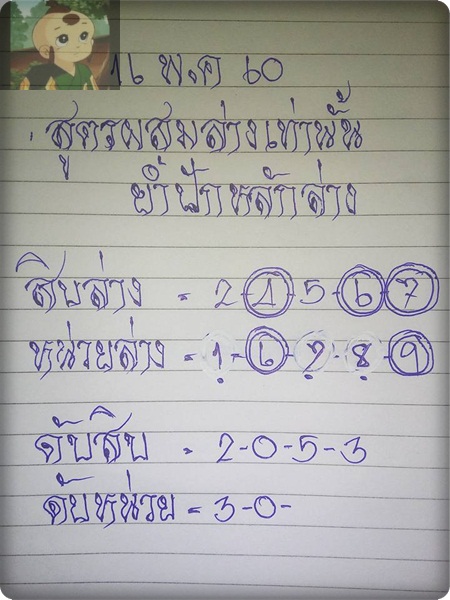 16 พ.ค 60
สูตรผสมล่างเท่านั้น
ย้ำปักหลักล่าง
สิบล่าง = 2-4-5-6-7
หน่วยล่าง = 1-6-7-8-9
ดับสิบ = 2-0-5-3
ดับหน่วย = 3-0-